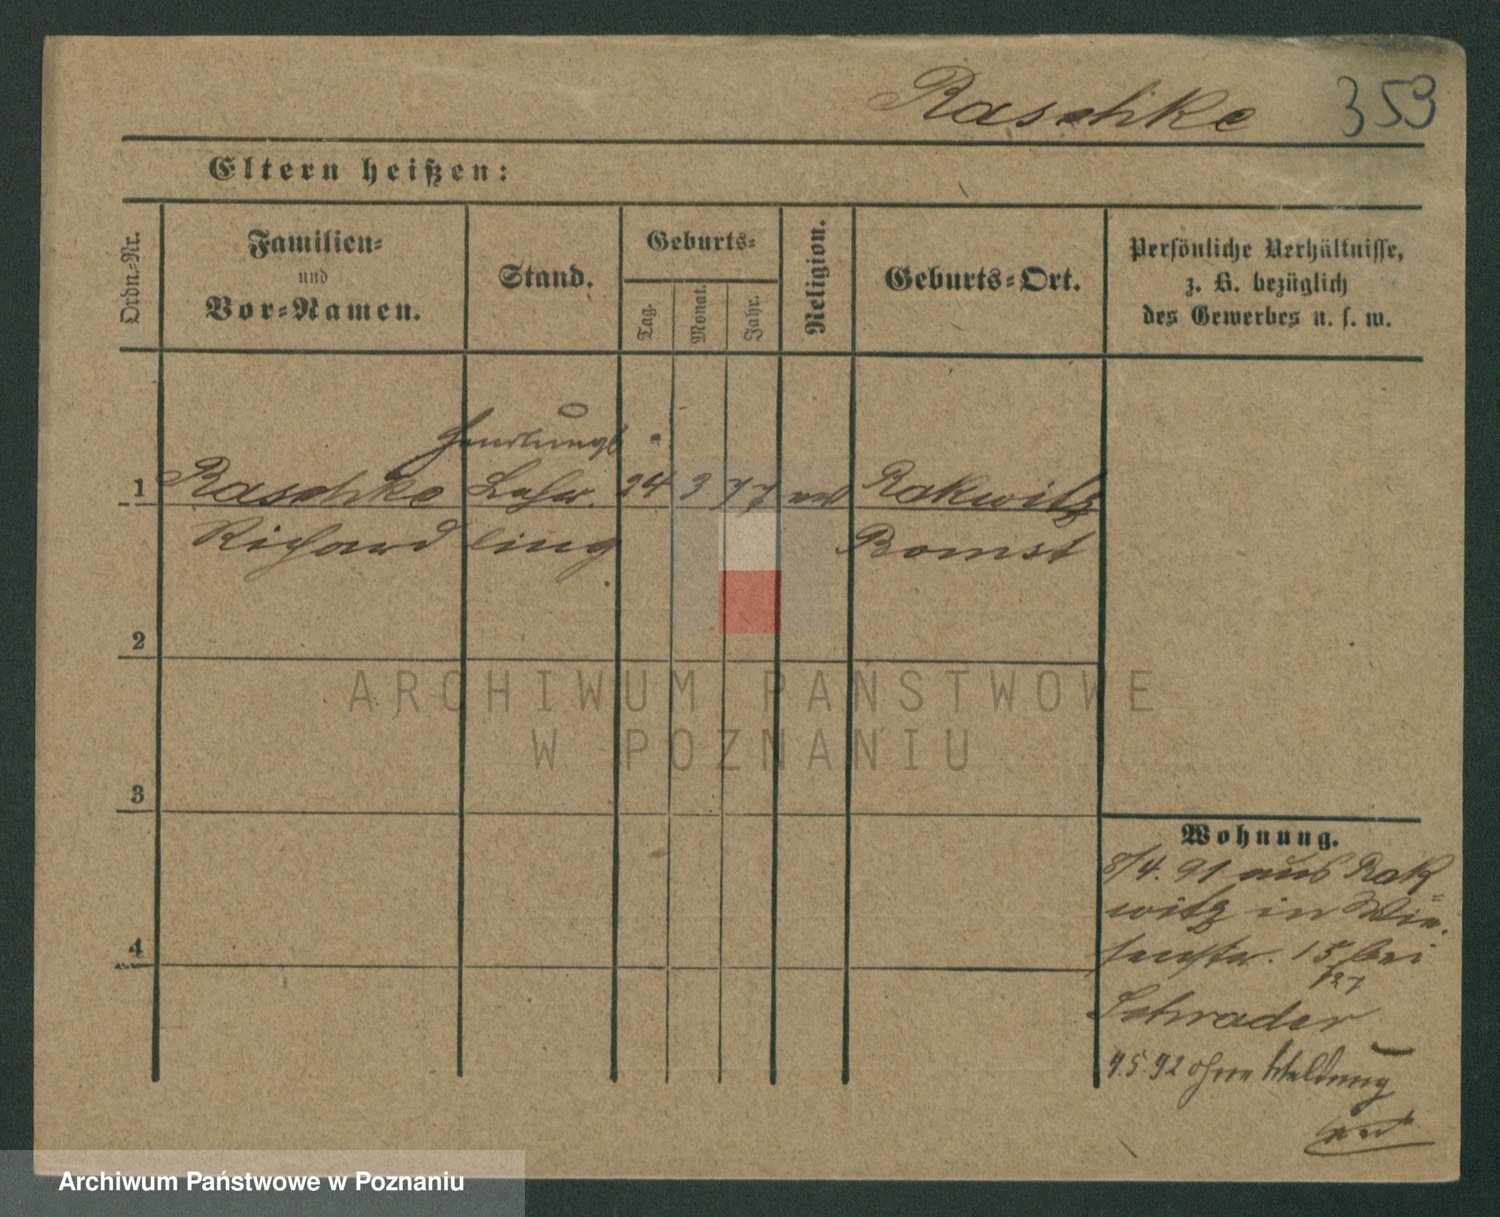 Raschke 353
Eltern heißen:
Ordn.-Nr.
Familien-
und
Vor-Namen.
Stand.
Geburts-
Tag.
Monat.
Jahr.
Religion.
Geburts-Ort.
Persönliche Verhältnisse,
z. B. bezüglich
des Gewerbes u. s. w.
Handlungs
1 Raschke Lehr. 24 3 77 Rakwitz
Richard ling Bomst
2
ARCHIWUM PAŃSTWOWE
W POZNANIU
3
4
Wohnung.
8/4. 91 aus Rak
witz in Wie-
senstr. 15 bei
Schrader
9.5.92 ohne Meldung
Archiwum Państwowe w Poznaniu